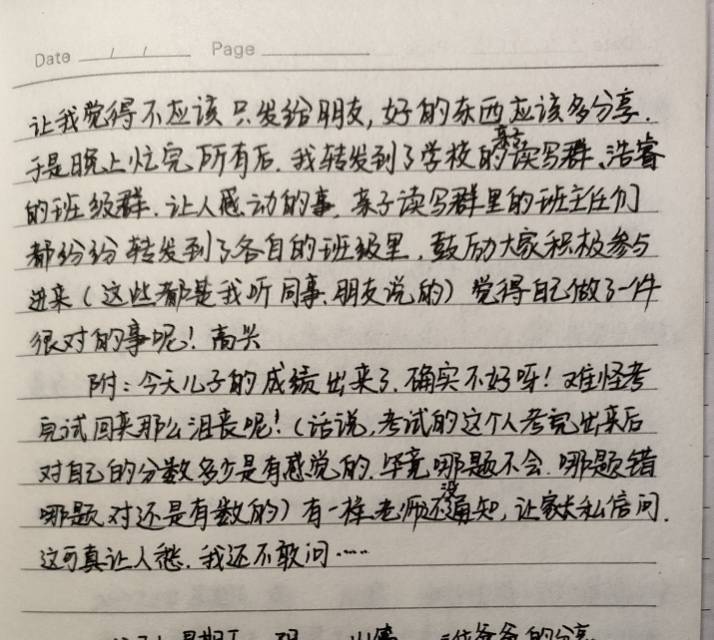 Date / / Page
让我觉得不应该只发给朋友,好的东西应该多分享.
于是晚上忙完所有后.我转发到了学校的亲子读写群、浩睿
的班级群.让人感动的事.亲子读写群里的班主任们
都纷纷转发到了各自的班级里,鼓励大家积极参与
进来(这些都是我听同事、朋友说的)觉得自己做了一件
很对的事呢!高兴
附:今天儿子的成绩出来了.确实不好呀!难怪考
完试回来那么沮丧呢!(话说,考试的这个人考完出来后
对自己的分数多少是有感觉的.毕竟哪题不会.哪题错
哪题对还是有数的)有一样老师还没通知,让家长私信问.
这可真让人愁.我还不敢问……
的分享